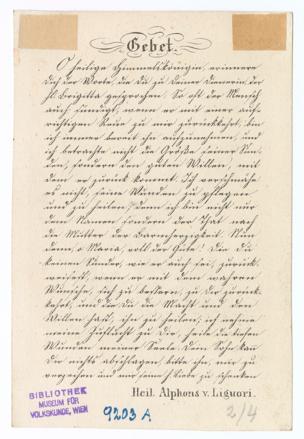 Gebet.
O heilige Himmelskönigin, erinnere
dich der Worte, die du zu deiner Dienerin, der
hl. Brigitta gesprochen: So oft der Mensch
auch sündigt, wenn er mit einer auf-
richtigen Reue zu mir zurückkehrt, bin
ich immer bereit ihn aufzunehmen, und
ich betrachte nicht die Größe seiner Sün-
den, sondern den guten Willen, mit
dem er zurück kommt. Ich verschmähe
es nicht, seine Wunden zu pflegen
und zu heilen, denn ich bin nicht nur
dem Namen sondern der That nach
die Mutter der Barmherzigkeit. Nun
denn, o Maria, voll der Güte! Die du
keinen Sünder, wie er auch sei, zurück-
weisest, wenn er mit dem wahren
Wunsche, sich zu bessern, zu dir zurück-
kehrt, und der du die Macht und den
Willen hast, ihn zu heilen; ich nehme
meine Zuflucht zu dir, heile die tiefen
Wunden meiner Seele. Dein Sohn kann
dir nichts abschlagen, bitte ihn, mir zu
verzeihen und mir seine Liebe zu schenken
Heil. Alphons v. Liguori.
BIBLIOTHEK
MUSEUM FÜR
VOLKSKUNDE, WIEN
9203 A
2/4